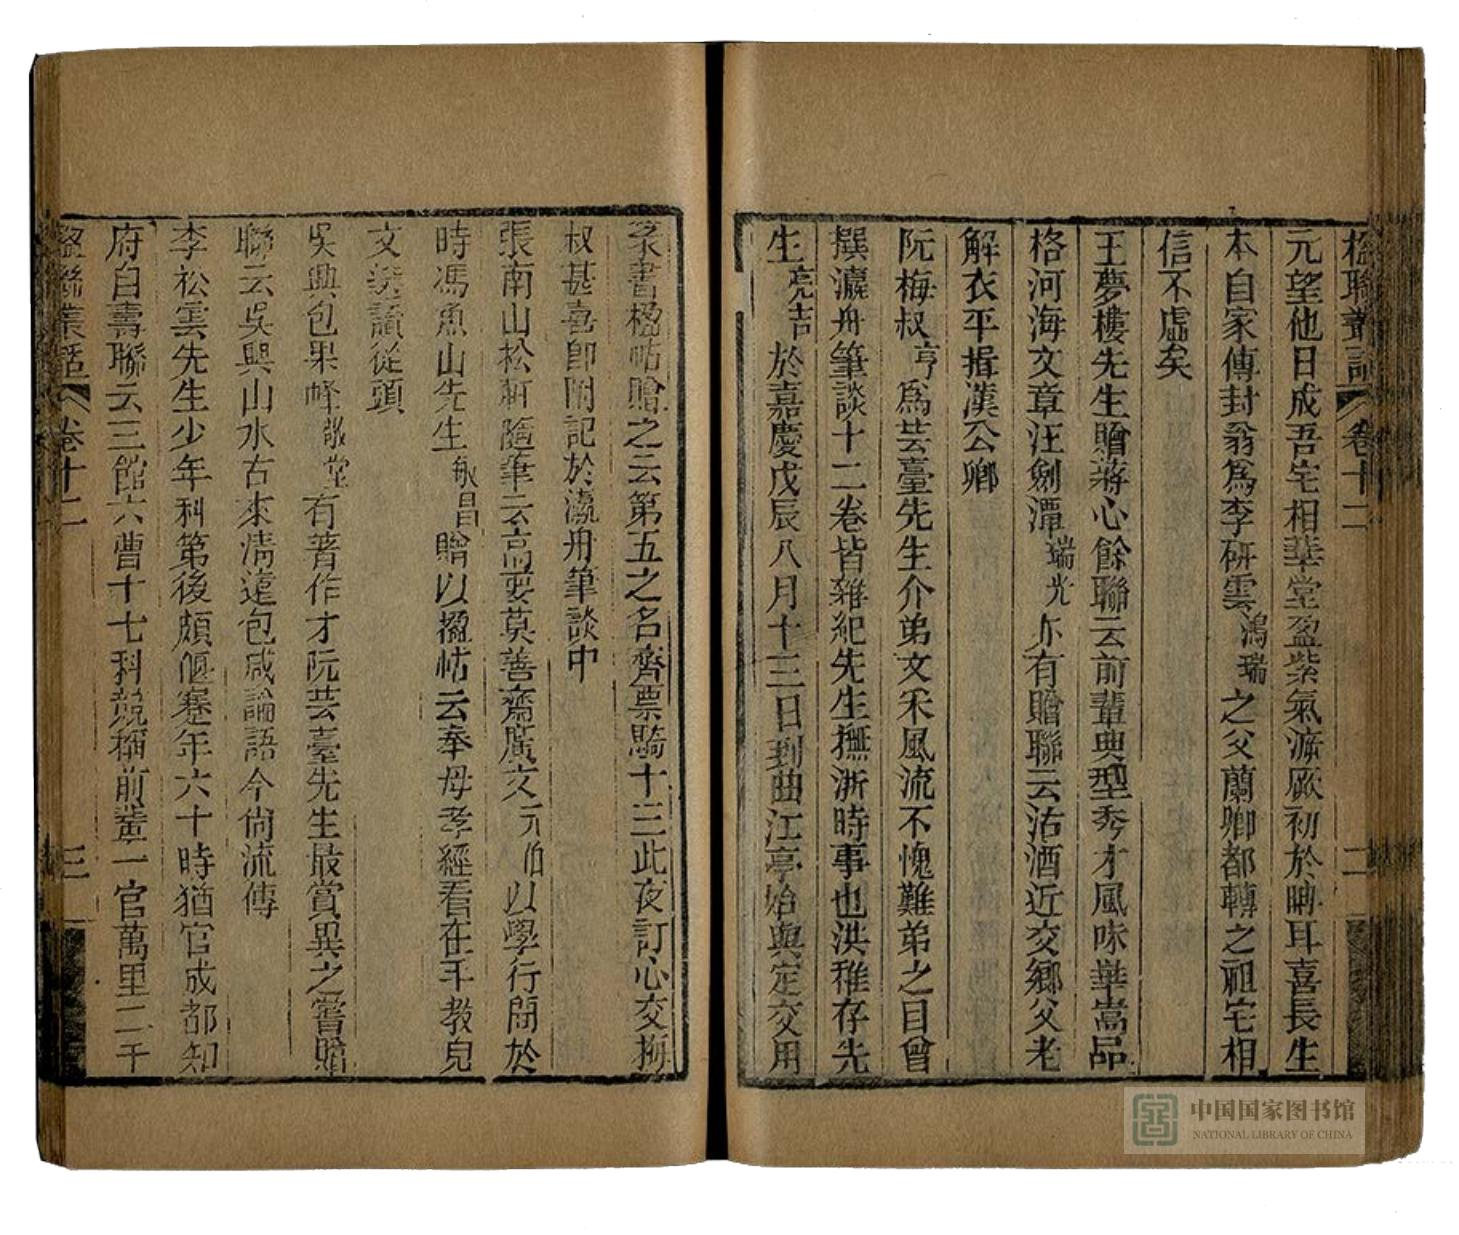 楹聯叢話 卷十二 二
元望他日成吾宅相華堂盈紫氣溯厥初於晬耳喜長生
本自家傳封翁為李硏雲鴻瑞之父蘭卿都轉之祖宅相
信不虛矣
王夢樓先生贈蔣心餘聯云前輩典型秀才風味華嵩品
格河海文章汪劍潭瑞光亦有贈聯云沽酒近交鄉父老
解衣平揖漢公卿
阮梅叔亨為芸臺先生介弟文采風流不愧難弟之目曾
撰瀛舟筆談十二卷皆雜紀先生撫浙時事也洪稚存先
生亮吉於嘉慶戊辰八月十三日到曲江亭始與定交用
篆書楹帖贈之云第五之名齊票騎十三此夜訂心交梅
叔甚喜卽附記於瀛舟筆談中
張南山松軒隨筆云高要莫善齋廣文元伯以學行聞於
時馮魚山先生敏昌贈以楹帖云奉母孝經看在手教兒
文選讀從頭
吳興包果峰敬堂有著作才阮芸臺先生最賞異之嘗贈
聯云吳興山水古來清遠包咸論語今尚流傳
李松雲先生少年科第後頗偃蹇年六十時猶官成都知
府自壽聯云三館六曹十七科競稱前輩一官萬里二千
楹聯叢話 卷十二 三
中国国家图书馆
NATIONAL LIBRARY OF CHINA